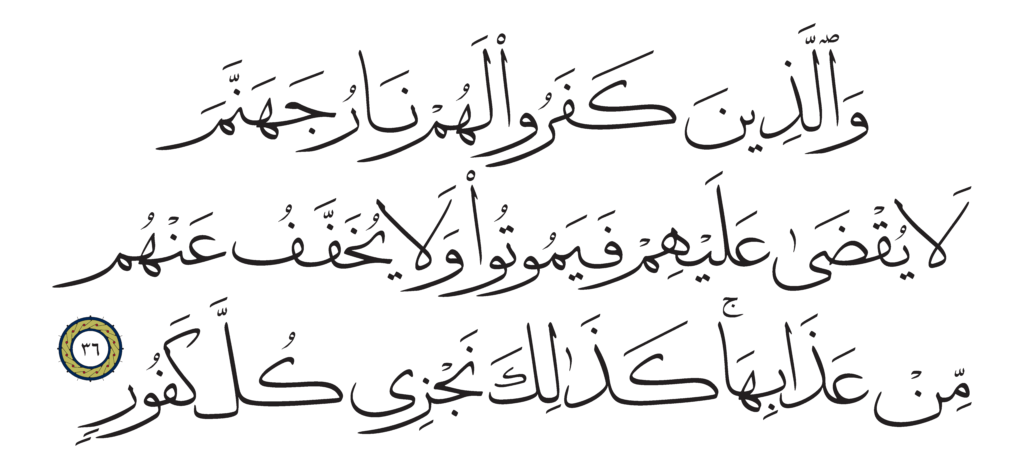 وَٱلَّذِينَ كَفَرُوا۟ لَهُمْ نَارُ جَهَنَّمَ
لَا يُقْضَىٰ عَلَيْهِمْ فَيَمُوتُوا۟ وَلَا يُخَفَّفُ عَنْهُم
مِّنْ عَذَابِهَا ۚ كَذَٰلِكَ نَجْزِى كُلَّ كَفُورٍ ٣٦